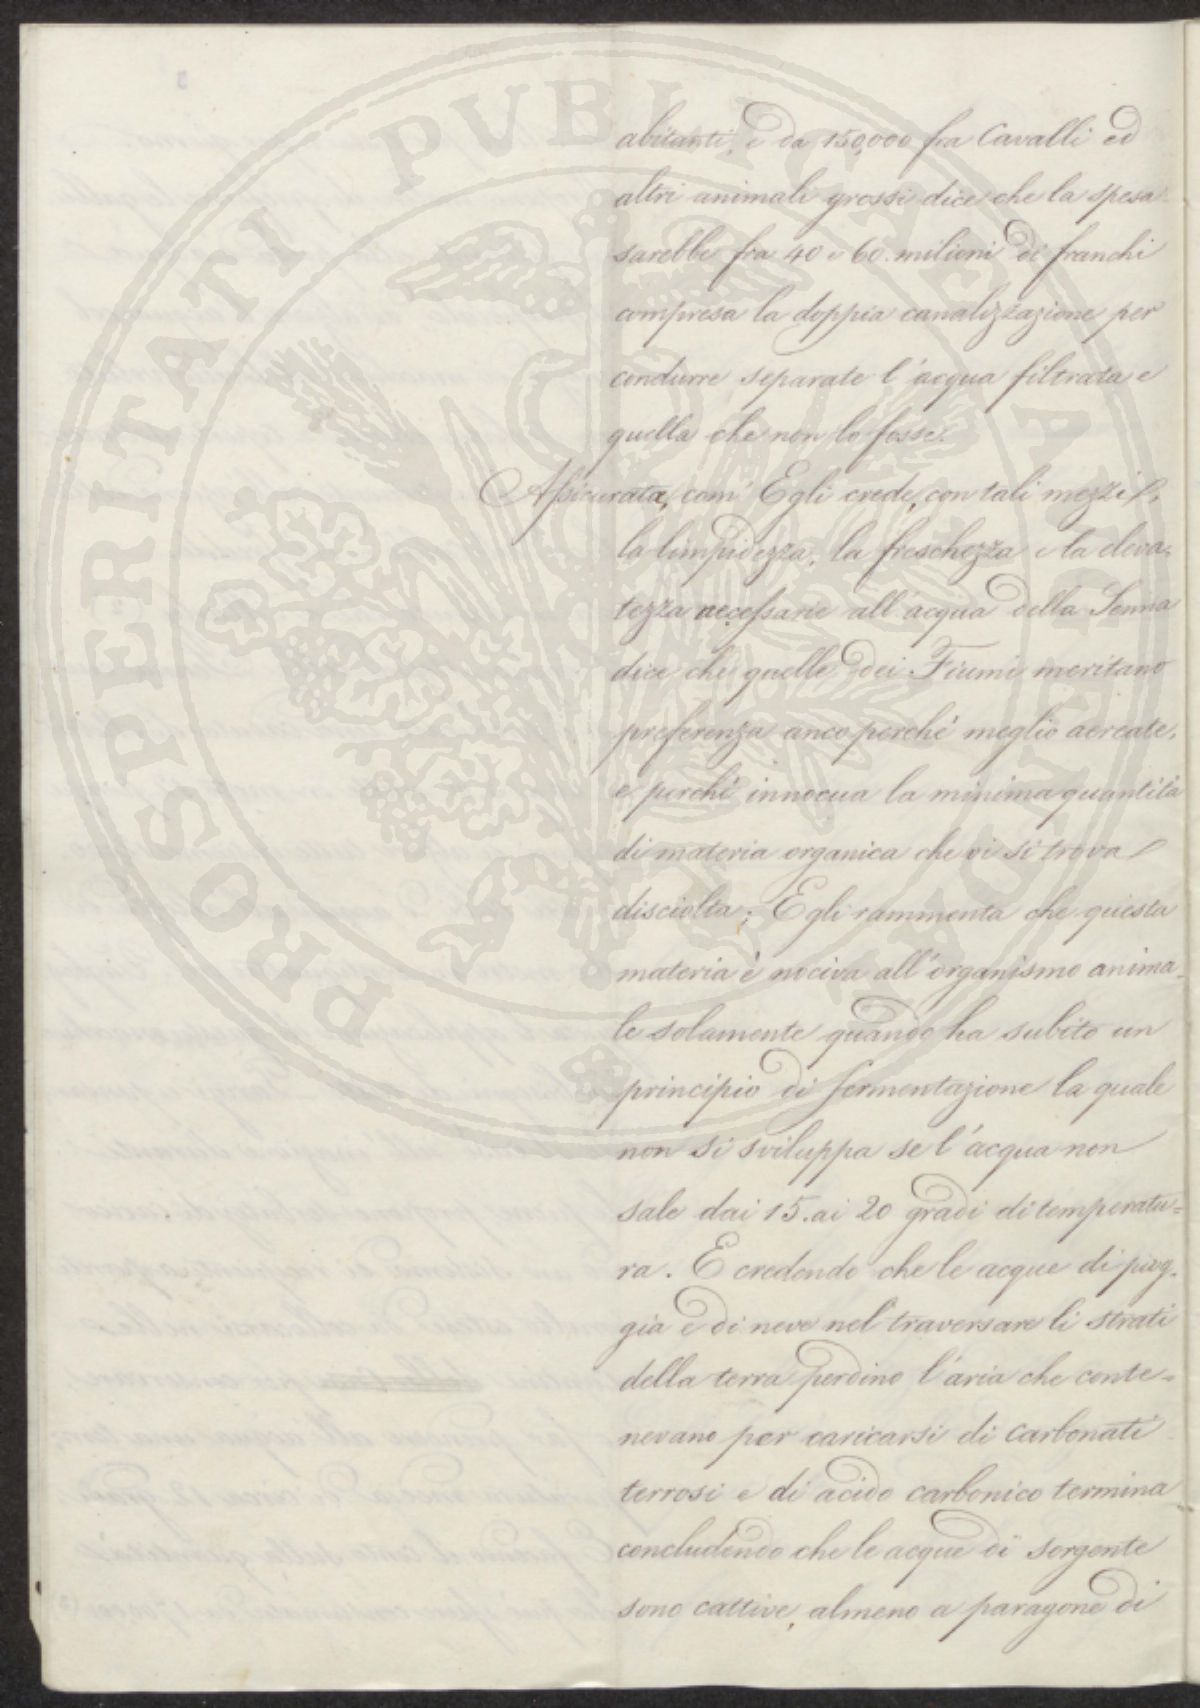 abitanti, e da 150,000 fra Cavalli ed
altri animali grossi dice che la spesa
sarebbe fra 40 e 60. milioni di franchi
compresa la doppia canalizzazione per
condurre separate l'acqua filtrata e
quella che non lo fosse.
Assicurata, com' Egli crede, con tali mezzi
la limpidezza, la freschezza e la deva=
tezza necessarie all'acqua della Senna
dice che quelle dei Fiumi meritano
preferenza anco perché meglio aereate,
e perché innocua la minima quantità
di materia organica che vi si trova
disciolta; Egli rammenta che questa
materia è nociva all'organismo anima=
le solamente quando ha subito un
principio di fermentazione la quale
non si sviluppa se l'acqua non
sale dai 15. ai 20 gradi di temperatu=
ra. E credendo che le acque di piog=
gia e di neve nel traversare li strati
della terra perdino l'aria che conte=
nevano per caricarsi di Carbonati
terrosi e di acido carbonico termina
concludendo che le acque di sorgente
sono cattive, almeno a paragone di
PROSPERITATI PVBLICAE AVGENDAE